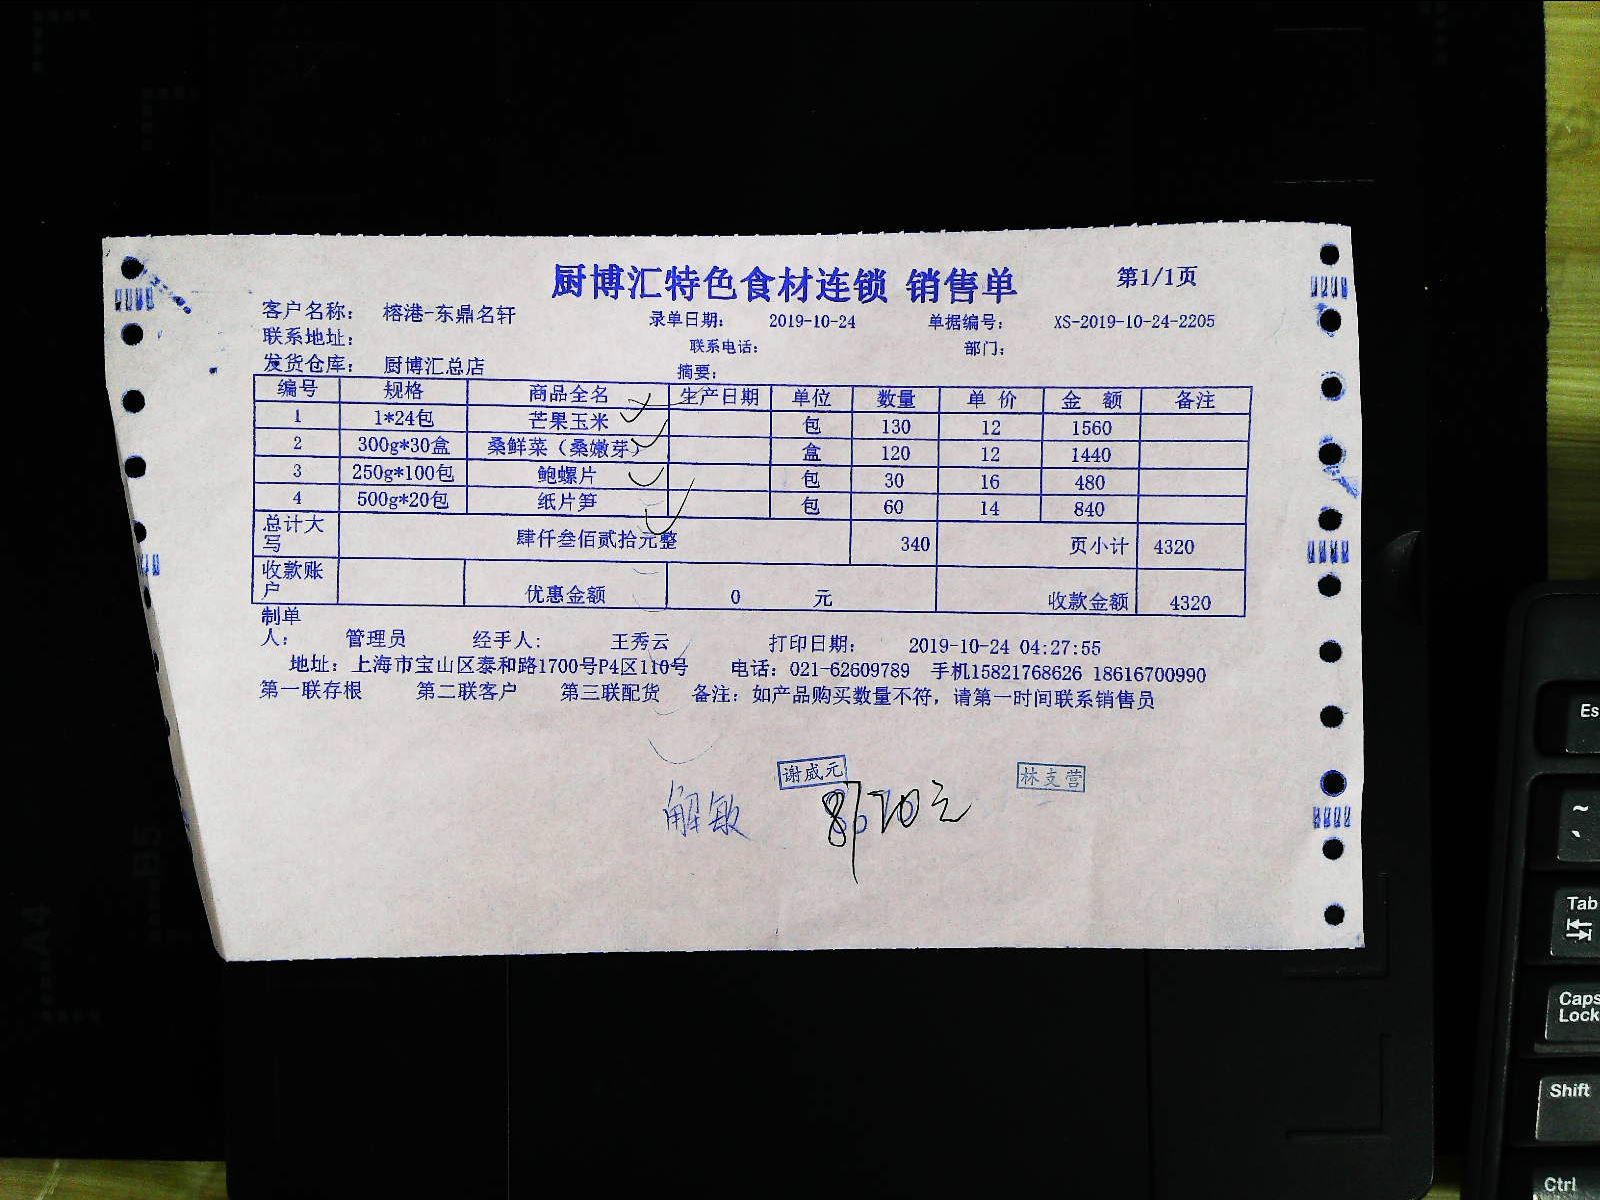 厨博汇特色食材连锁 销售单 第1/1页
客户名称: 榕港-东鼎名轩 录单日期: 2019-10-24 单据编号: XS-2019-10-24-2205
联系地址: 联系电话: 部门:
发货仓库: 厨博汇总店 摘要:
编号 规格 商品全名 生产日期 单位 数量 单 价 金 额 备注
1 1*24包 芒果玉米 包 130 12 1560
2 300g*30盒 桑鲜菜（桑嫩芽） 盒 120 12 1440
3 250g*100包 鲍螺片 包 30 16 480
4 500g*20包 纸片笋 包 60 14 840
总计大写 肆仟叁佰贰拾元整 340 页小计 4320
收款账户 优惠金额 0 元 收款金额 4320
制单
人: 管理员 经手人: 王秀云 打印日期: 2019-10-24 04:27:55
地址: 上海市宝山区泰和路1700号P4区110号 电话: 021-62609789 手机15821768626 18616700990
第一联存根 第二联客户 第三联配货 备注: 如产品购买数量不符, 请第一时间联系销售员
谢威元 林支营
解敏
Es
~
Tab
Caps
Lock
Shift
Ctrl
B5
A4